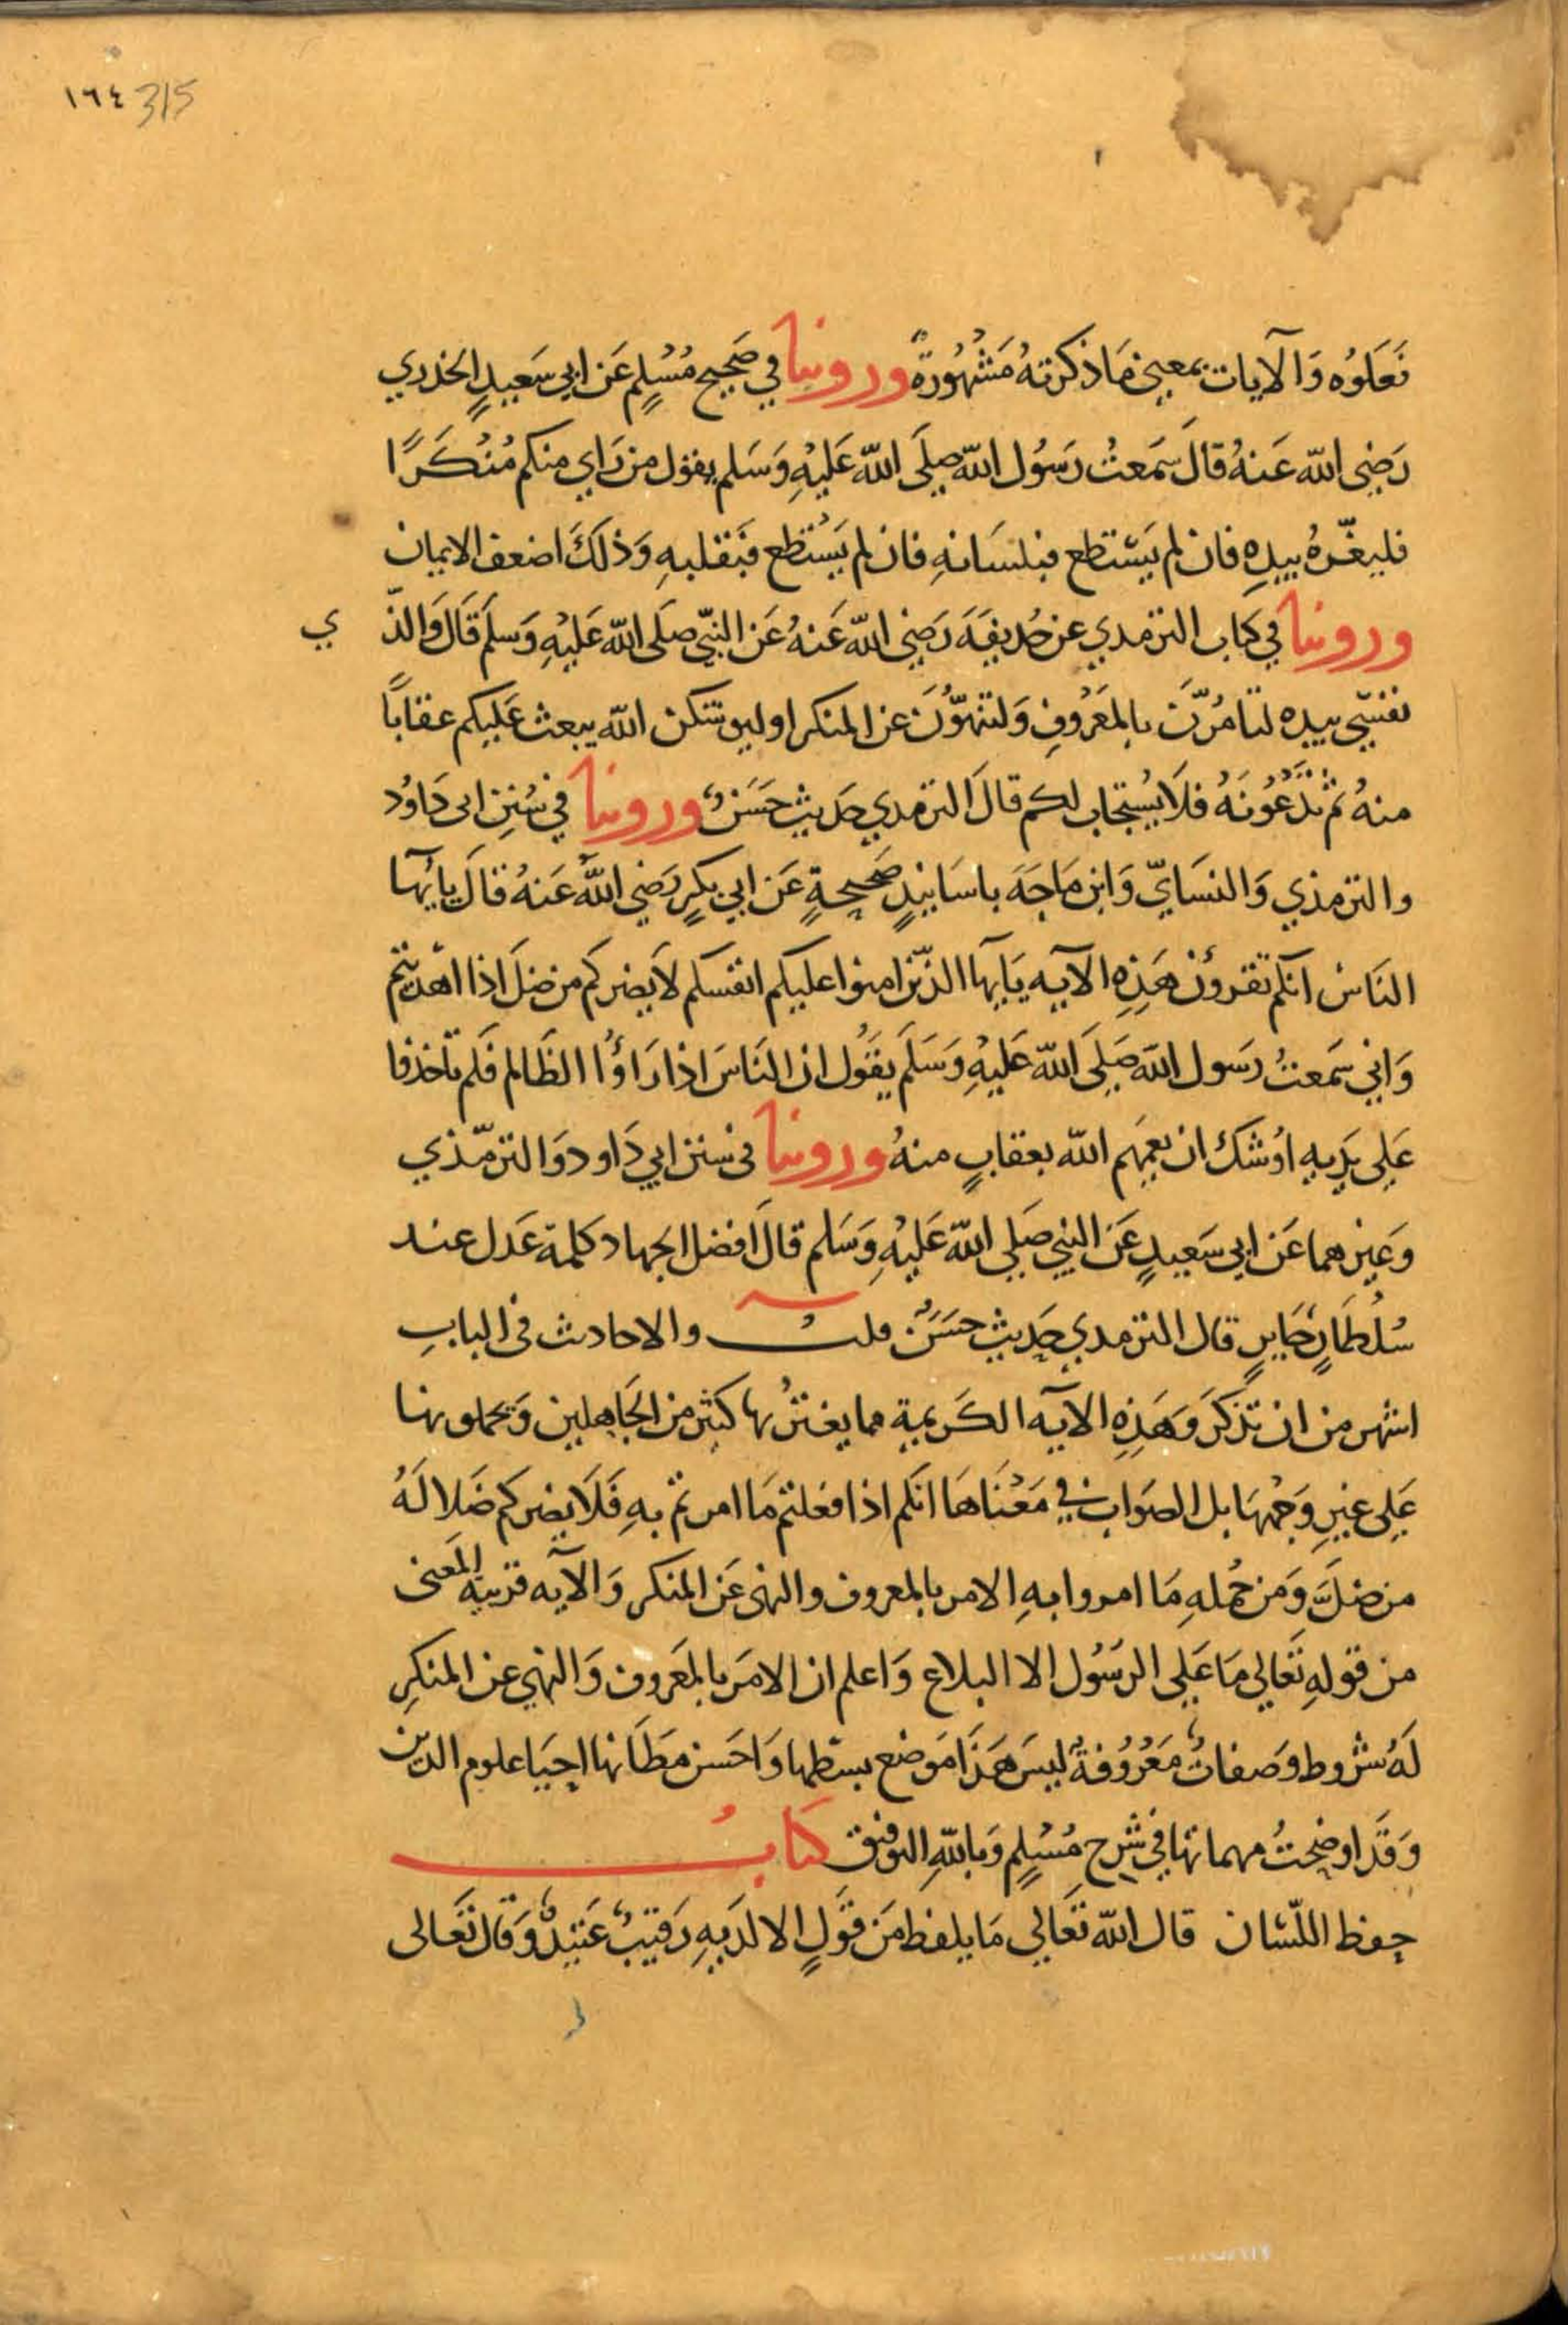 ١٦٤ 315
فَعَلوُه وَالآيات بمعنى مَا ذكرتهُ مَشْهُورَةٌ وروينا في صَحيح مُسْلِم عَن ابي سَعيدٍ الخدري
رَضي الله عَنهُ قالَ سَمَعتُ رَسُول الله صلَى الله عَليْهِ وَسَلم يقول من رَاي منكم مُنْكَرًا
فليغيّرهُ بيدِهِ فان لم يَسْتطع فبلسَانهِ فان لم يَسْتطع فبَقلبهِ وَذلكَ اضعف الايمان
وروينا في كتاب الترمدي عن حُديفَةَ رَضي الله عَنهُ عَن النبّي صلَى الله عَليْهِ وَسلمَ قَالَ وَالذّ ي
نفسّي بيده لتامُرّنَ بالمَعْروفِ وَلتنهوّنَ عن المنكر او ليوشكن الله يبعث عَليكم عقاباً
منهُ ثم تَدْعُونَهُ فلَا يُسْتجاب لكم قالَ الترمدي حَديث حَسَنٌ وروينا في سُنن ابى دَاوُد
والترمذي وَالنسَايّ وَابن مَاجَةَ باسَانيدٍ صَحيحةٍ عَن ابي بكرٍ رَضي اللهُ عَنهُ قالَ يايُّها
النَاسُ انكم تقرؤن هَذِهِ الآيه يَايها الذّين امنوا عليكم انفسكم لا يَضركم من ضلَ اذا اهْديتم
وَاني سَمَعتُ رسَول الله صَلِى الله عَليْهِ وَسَلَم يقَول ان النَاسَ اذا رَاؤُا الظَالم فَلم تأخذفا
عَلي يَديهِ اوُشك ان يعمهَم الله بعقابٍ منهُ وروينا في سنن ابي دَاود وَالترمّذي
وَغيرهما عَن ابي سَعيدٍ عَن النبي صَلى الله عَليْهِ وَسَلم قالَ افضل الجهاد كلمة عَدل عند
سُلطَانٍ جَايرٍ قال الترمدي حَديث حَسَنٌ قلتُ والاحادث في البابِ
اشهر من ان تذكَرَ وَهَذِهِ الآيه الكَريمة مما يغترُ بها كثير من الجَاهلين وَيحملونها
عَلى غيرِ وَجْهِهَا بل الصَواب في مَعْنَاهَا انكم اذا فعَلتم مَا امرتم بهِ فَلَا يضركم ضَلالَهُ
من ضلَّ وَمن جُملهِ مَا امروا بهِ الامر بالمعروف والنهى عَن المنكر وَالآيه قريبَه المَعنى
من قولهِ تَعَالي مَا عَلى الرسَوُل الا البلاع وَاعلم ان الامَر بالمَعروف وَالنهي عن المنكرِ
لَهُ شروط وَصفاتٌ مَعْرُوُفةٌ ليسَ هَذَا مَوضع بسَطها وَاحَسن مظَانها احيَا علوم الديّن
وَقَد اوضحتُ مهماتها في شرح مُسْلِمٍ وَبالله التوفيق كتابُ
حفظ اللّسَان قال الله تَعَالي مَا يلفظ مَن قَولٍ الا لدَيهِ رَقيبٌ عَتيدٌ وَقال تَعَالى